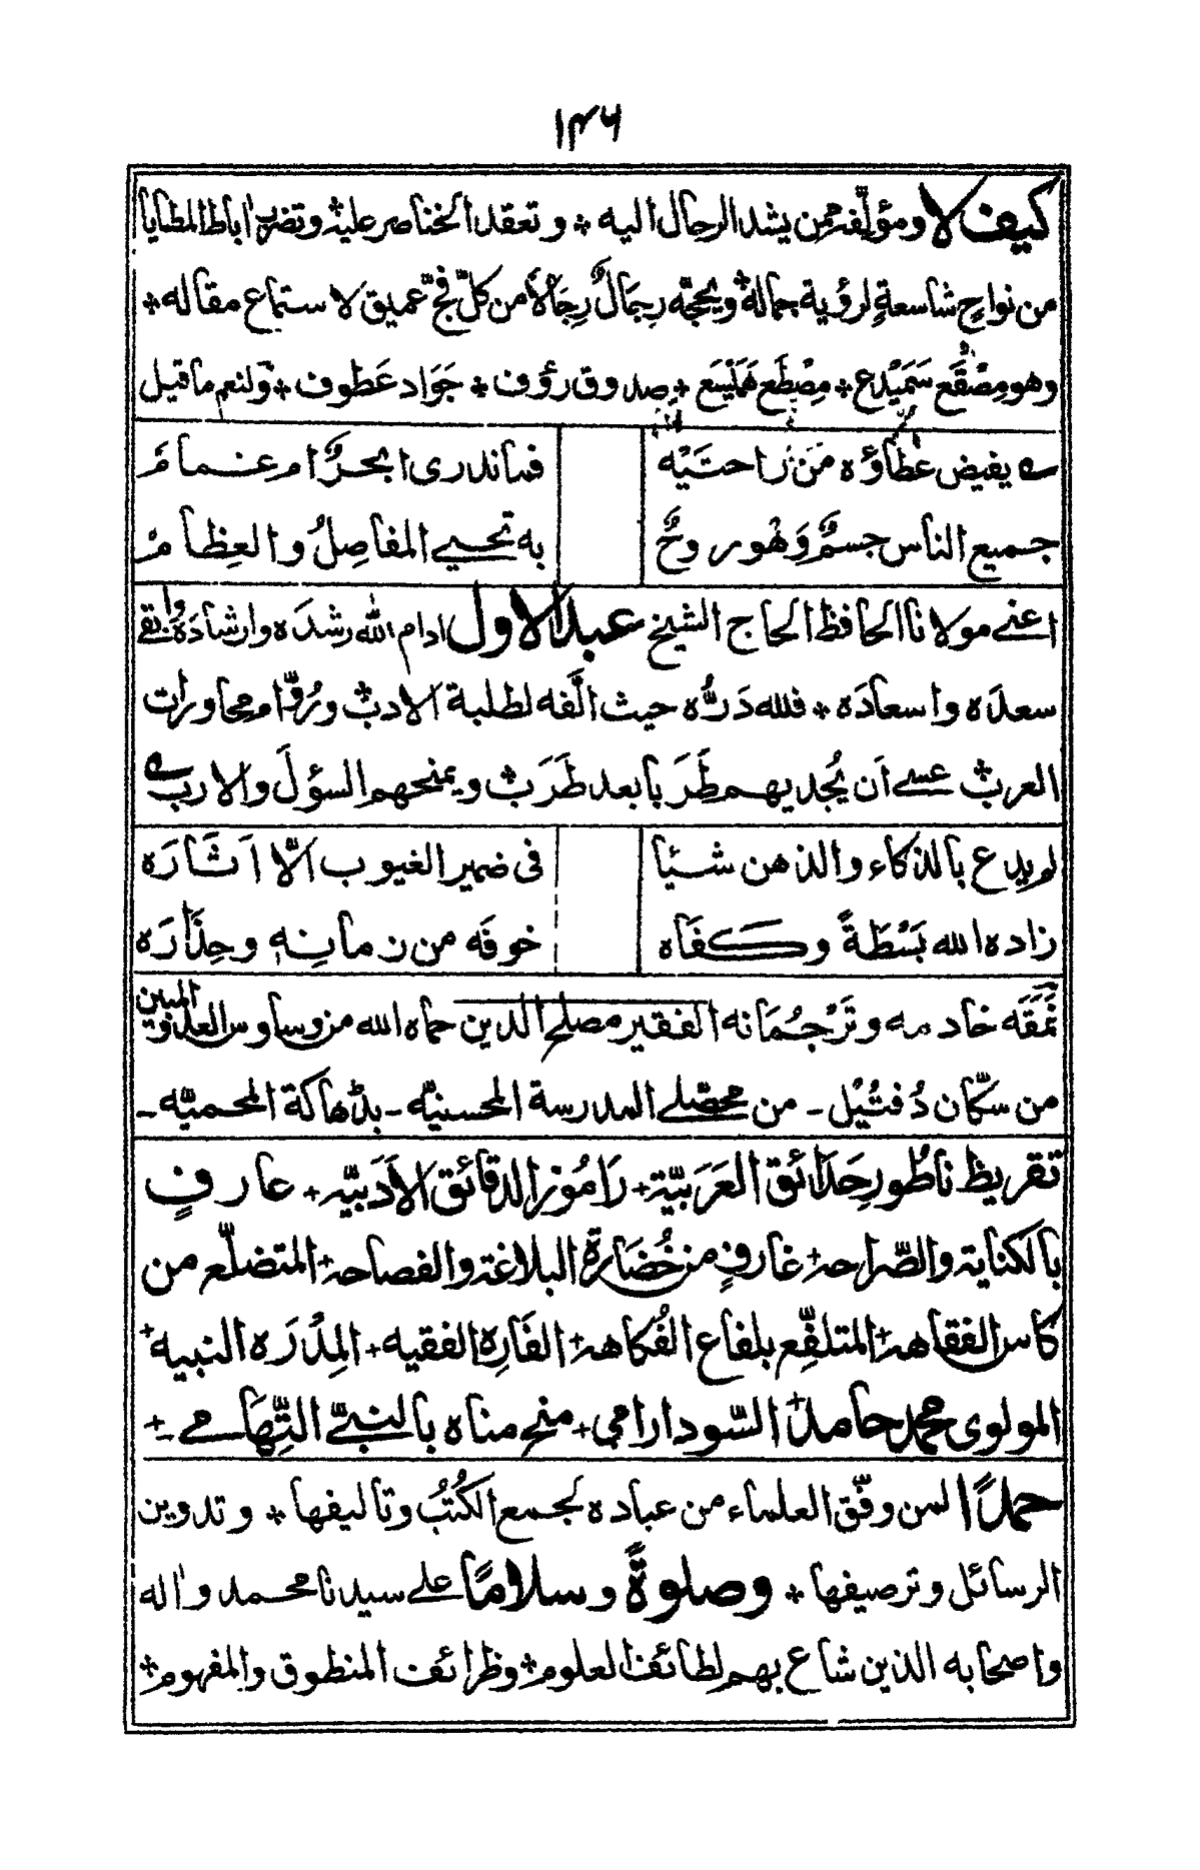 ۱۴۶
كيف لا ومؤلفه ممن يشد الرحال اليه * وتعقد الخناصر عليه * وتضرب اباط المطايا
من نواحٍ شاسعةٍ لرؤية جماله * ويحجّه رِجَالٌ رِجَالًا من كلّ فجّ عميق لاستماع مقاله *
وهو مِصْقَع سَمَيْدع * مِصْطَع هَمَيْسَع * صدوق رؤف * جَوَاد عَطوف * ولنعم ما قيل
ے يفيض عطاؤه مِن رَاحتَيْه فما ندرى ابحرٌ ام غمامٌ
جميع الناس جسمٌ وَهْو روحٌ به تحيي المفاصلُ والعِظامُ
اعنے مولانا الحافظ الحاج الشيخ عبد الاول ادام الله رشدَه وارشادَه وابقے
سعدَه واسعادَه * فلله دَرُّه حيث الَّفه لطلبة الادب * ورُقّام محاورات
العرب * عسے اَن يُجديهم طَرَبا بعد طَرَب * ويمنحهم السؤلَ والارب ے
لم يدع بالذكاء والذهن شيئا فى ضمير الغيوب الّا اَثَارَه
زاده الله بَسْطَةً وكفَاه خوفَه من زمانِه وحِذَارَه
نَمَقَه خادمه وتَرْجُمَانه الفقير مصلح الدين حماه الله من وساوس العدو المبين
من سكّان دُفتُيْل ـ من محصّلے المدرسة المحسنيّه ـ بڈهاكة المحميّه ـ
تقريظ ناطُورِ حَدَائق العَرَبيّة * رَامُوز الدقائق الاَدَبيّه * عارفٍ
بالكناية والصّراحه * غارفٍ من خُضَارة البلاغة والفصاحه * المتضلّع من
كاس الفقاهه * المتلفّع بلفاع الفُكاهه * الفَارِه الفقيه * المِدْرَه النبيه *
المولوى محمد حامد * السّودارامي * منح مناه بالنبيّ التِّهَامے *
حمدًا لمن وفّق العلماء من عباده لجمع الكُتُبِ وتاليفها * وتدوين
الرسائل وترصيفها * وصلوةً وسلامًا علے سيدنا محمد واله
واصحابه الذين شاع بهم لطائف العلوم * وظرائف المنطوق والمفهوم *